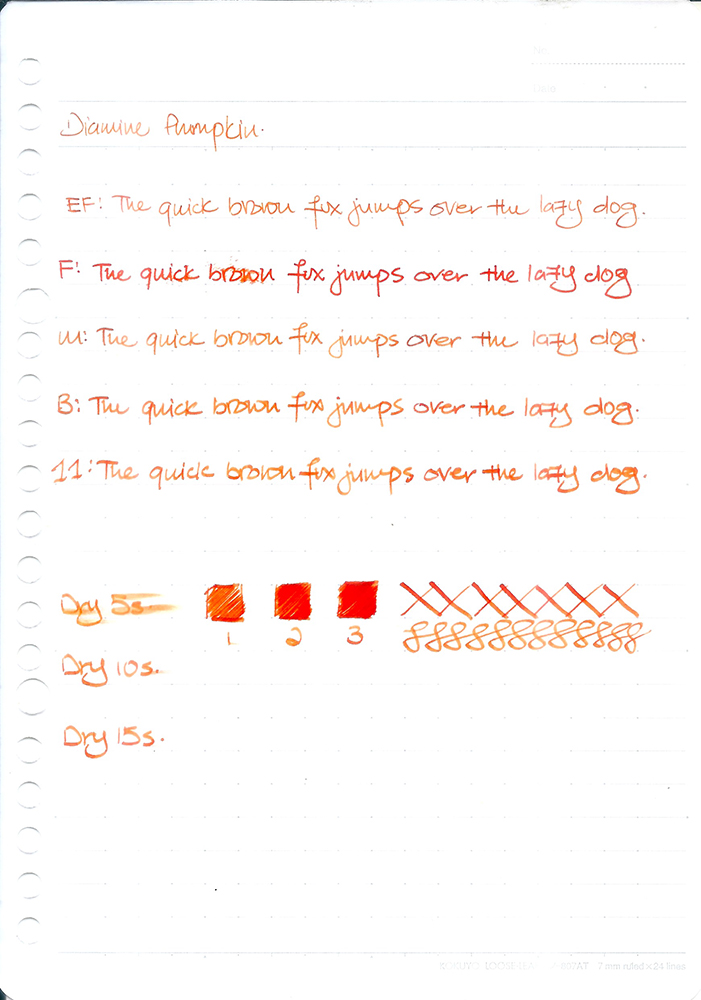 No.
Date
Diamine Pumpkin.
EF: The quick brown fox jumps over the lazy dog.
F: The quick brown fox jumps over the lazy dog
M: The quick brown fox jumps over the lazy dog.
B: The quick brown fox jumps over the lazy dog.
1.1: The quick brown fox jumps over the lazy dog.
Dry 5s.
1 2 3
Dry 10s.
Dry 15s.
KOKUYO LOOSE-LEAF 7 mm ruled x 24 lines